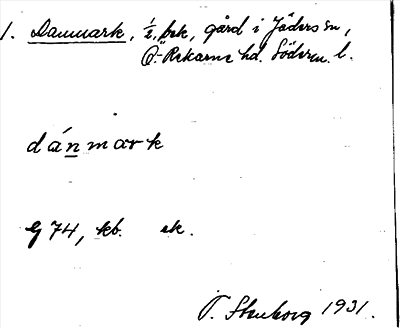 1. Danmark, ½, bek, gård i Jäders sn,
Ö-Rekarne hd. Söderm. l.
dánmark
G 74, kb. ek.
T. Stenborg 1931.